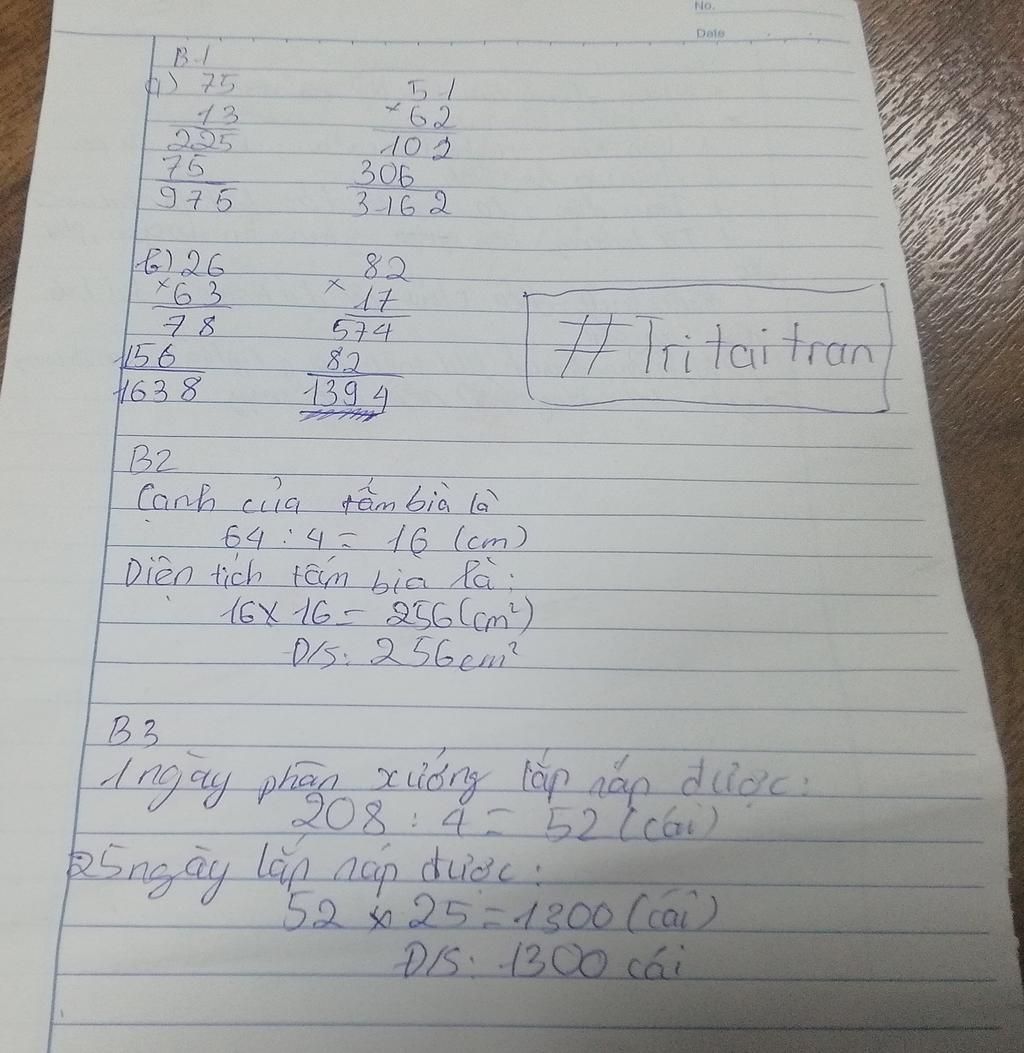 No.
Date
B1
a) 75
13
225
75
975
51
× 62
102
306
3162
b) 26
× 63
78
156
1638
82
× 17
574
82
1394
#Tritaitran
B2
Cạnh của tấm bìa là
64 : 4 = 16 (cm)
Diện tích tấm bìa là:
16 x 16 = 256 (cm²)
Đ/S: 256cm²
B3
1 ngày phân xưởng lắp ráp được:
208 : 4 = 52 (cái)
25 ngày lắp ráp được:
52 x 25 = 1300 (cái)
Đ/S: 1300 cái